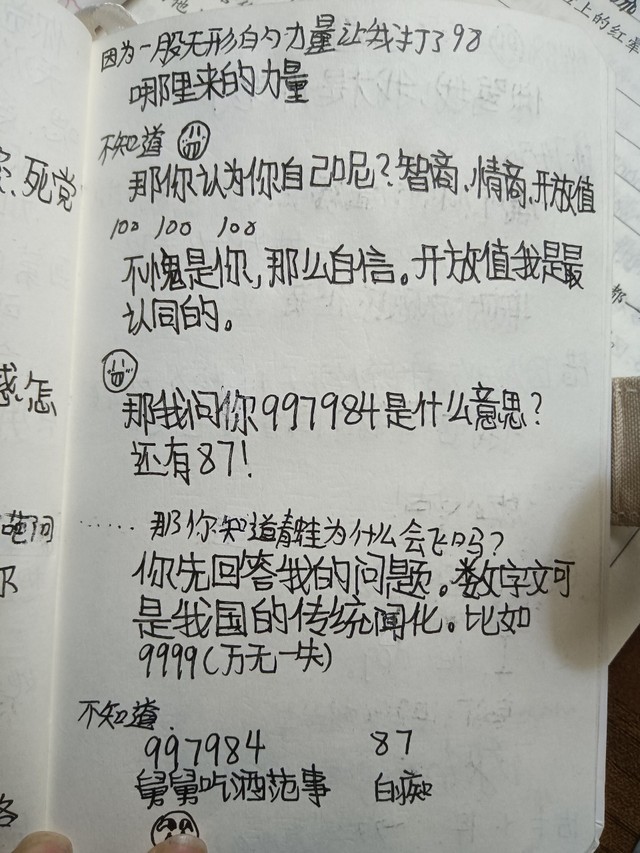 因为一股无形的力量让我打了98
哪里来的力量
不知道
那你认为你自己呢？智商、情商、开放值
100 100 100
不愧是你，那么自信。开放值我是最
认同的。
那我问你997984是什么意思？
还有87！
…… 那你知道青蛙为什么会飞吗？
你先回答我的问题。数字文可
是我国的传统闻化。比如
9999（万无一失）
不知道.
997984 87
舅舅吃酒范事 白痴
死党
感怎
上的红掌